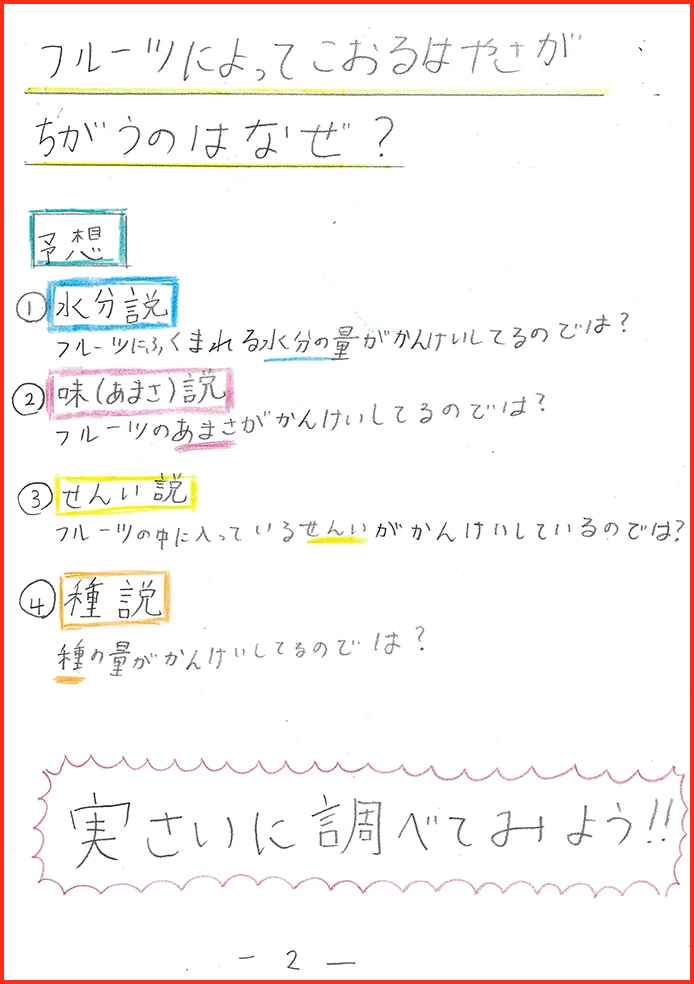 フルーツによってこおるはやさが
ちがうのはなぜ?
予想
① 水分説
フルーツにふくまれる水分の量がかんけいしてるのでは?
② 味(あまさ)説
フルーツのあまさがかんけいしてるのでは?
③ せんい説
フルーツの中に入っているせんいがかんけいしているのでは?
④ 種説
種の量がかんけいしてるのでは?
実さいに調べてみよう!!
- 2 -